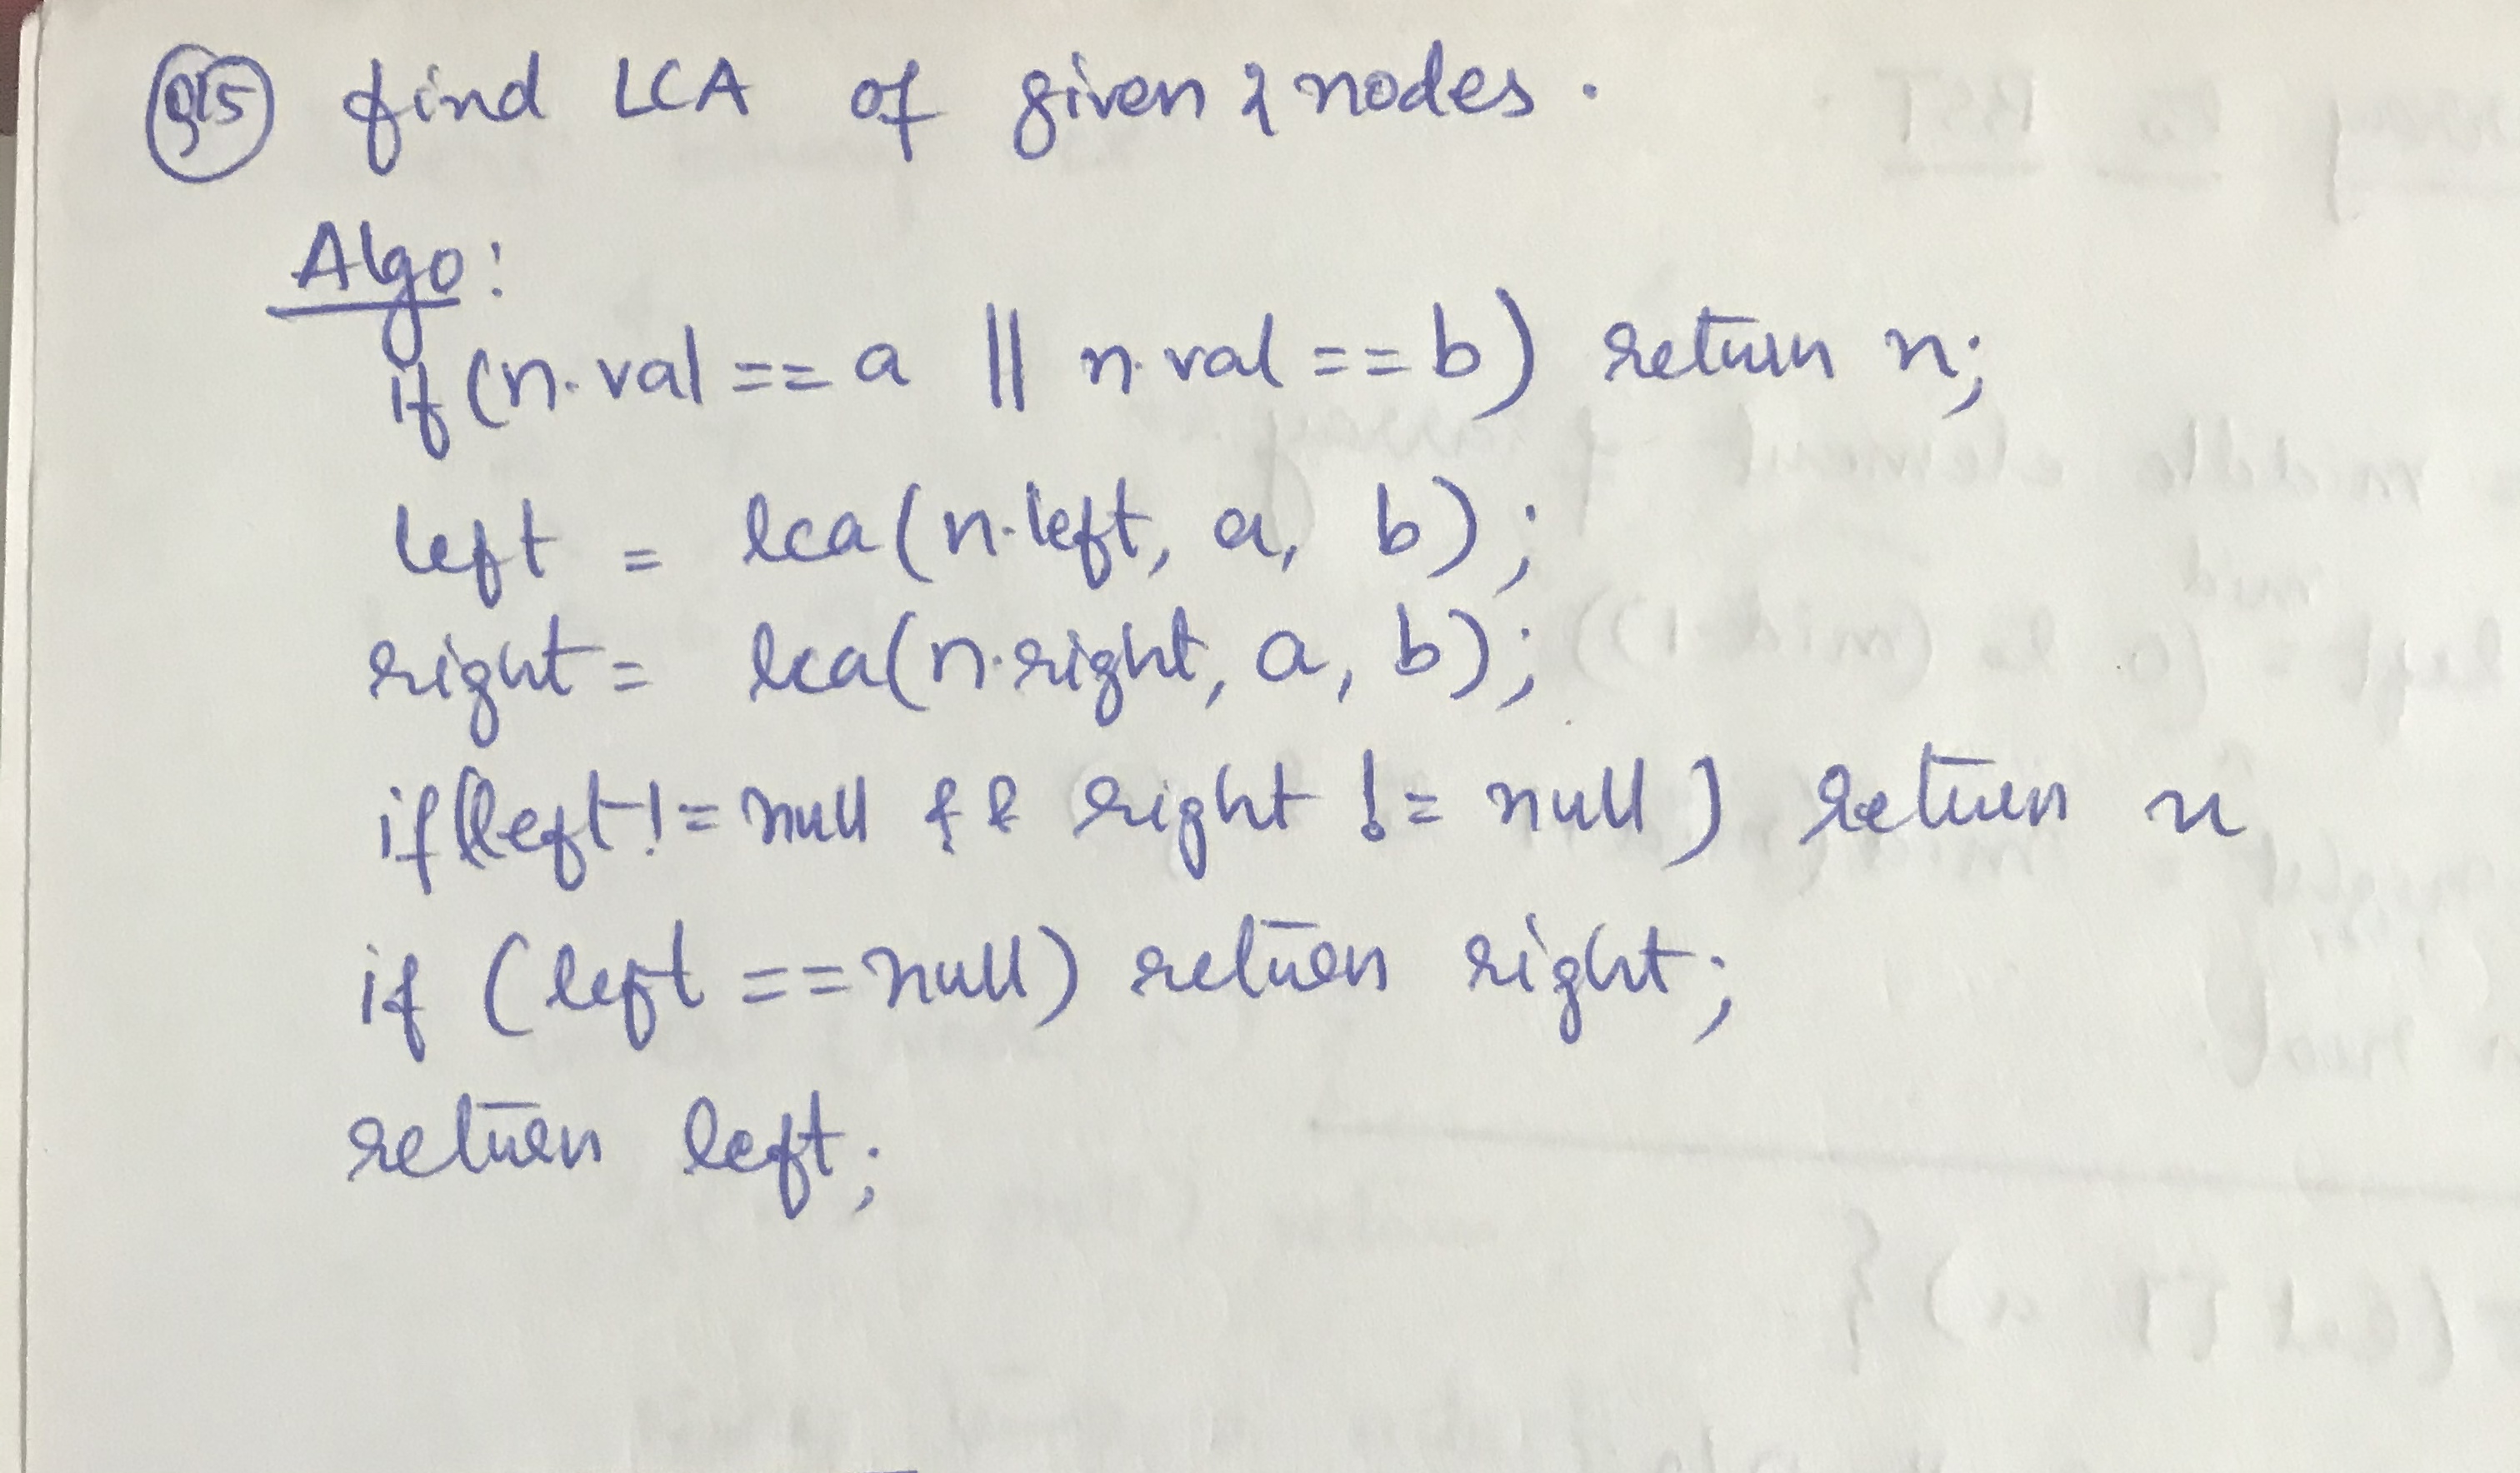 Q15 find LCA of given 2 nodes.
Algo:
if (n.val == a || n.val == b) return n;
left = lca(n.left, a, b);
right = lca(n.right, a, b);
if(left != null && right != null) return n
if (left == null) return right;
return left;